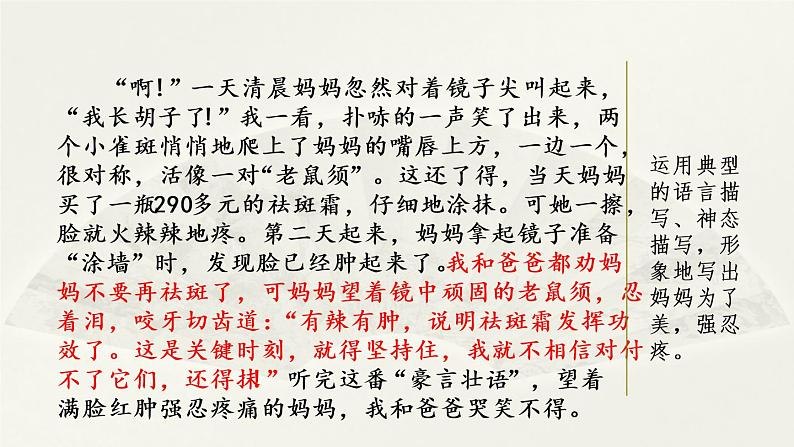 “啊!”一天清晨妈妈忽然对着镜子尖叫起来，
“我长胡子了!”我一看，扑哧的一声笑了出来，两
个小雀斑悄悄地爬上了妈妈的嘴唇上方，一边一个，
很对称，活像一对“老鼠须”。这还了得，当天妈妈
买了一瓶290多元的祛斑霜，仔细地涂抹。可她一擦，
脸就火辣辣地疼。第二天起来，妈妈拿起镜子准备
“涂墙”时，发现脸已经肿起来了。我和爸爸都劝妈
妈不要再祛斑了，可妈妈望着镜中顽固的老鼠须，忍
着泪，咬牙切齿道：“有辣有肿，说明祛斑霜发挥功
效了。这是关键时刻，就得坚持住，我就不相信对付
不了它们，还得抹!”听完这番“豪言壮语”，望着
满脸红肿强忍疼痛的妈妈，我和爸爸哭笑不得。
运用典型
的语言描
写、神态
描写，形
象地写出
妈妈为了
美，强忍
疼。